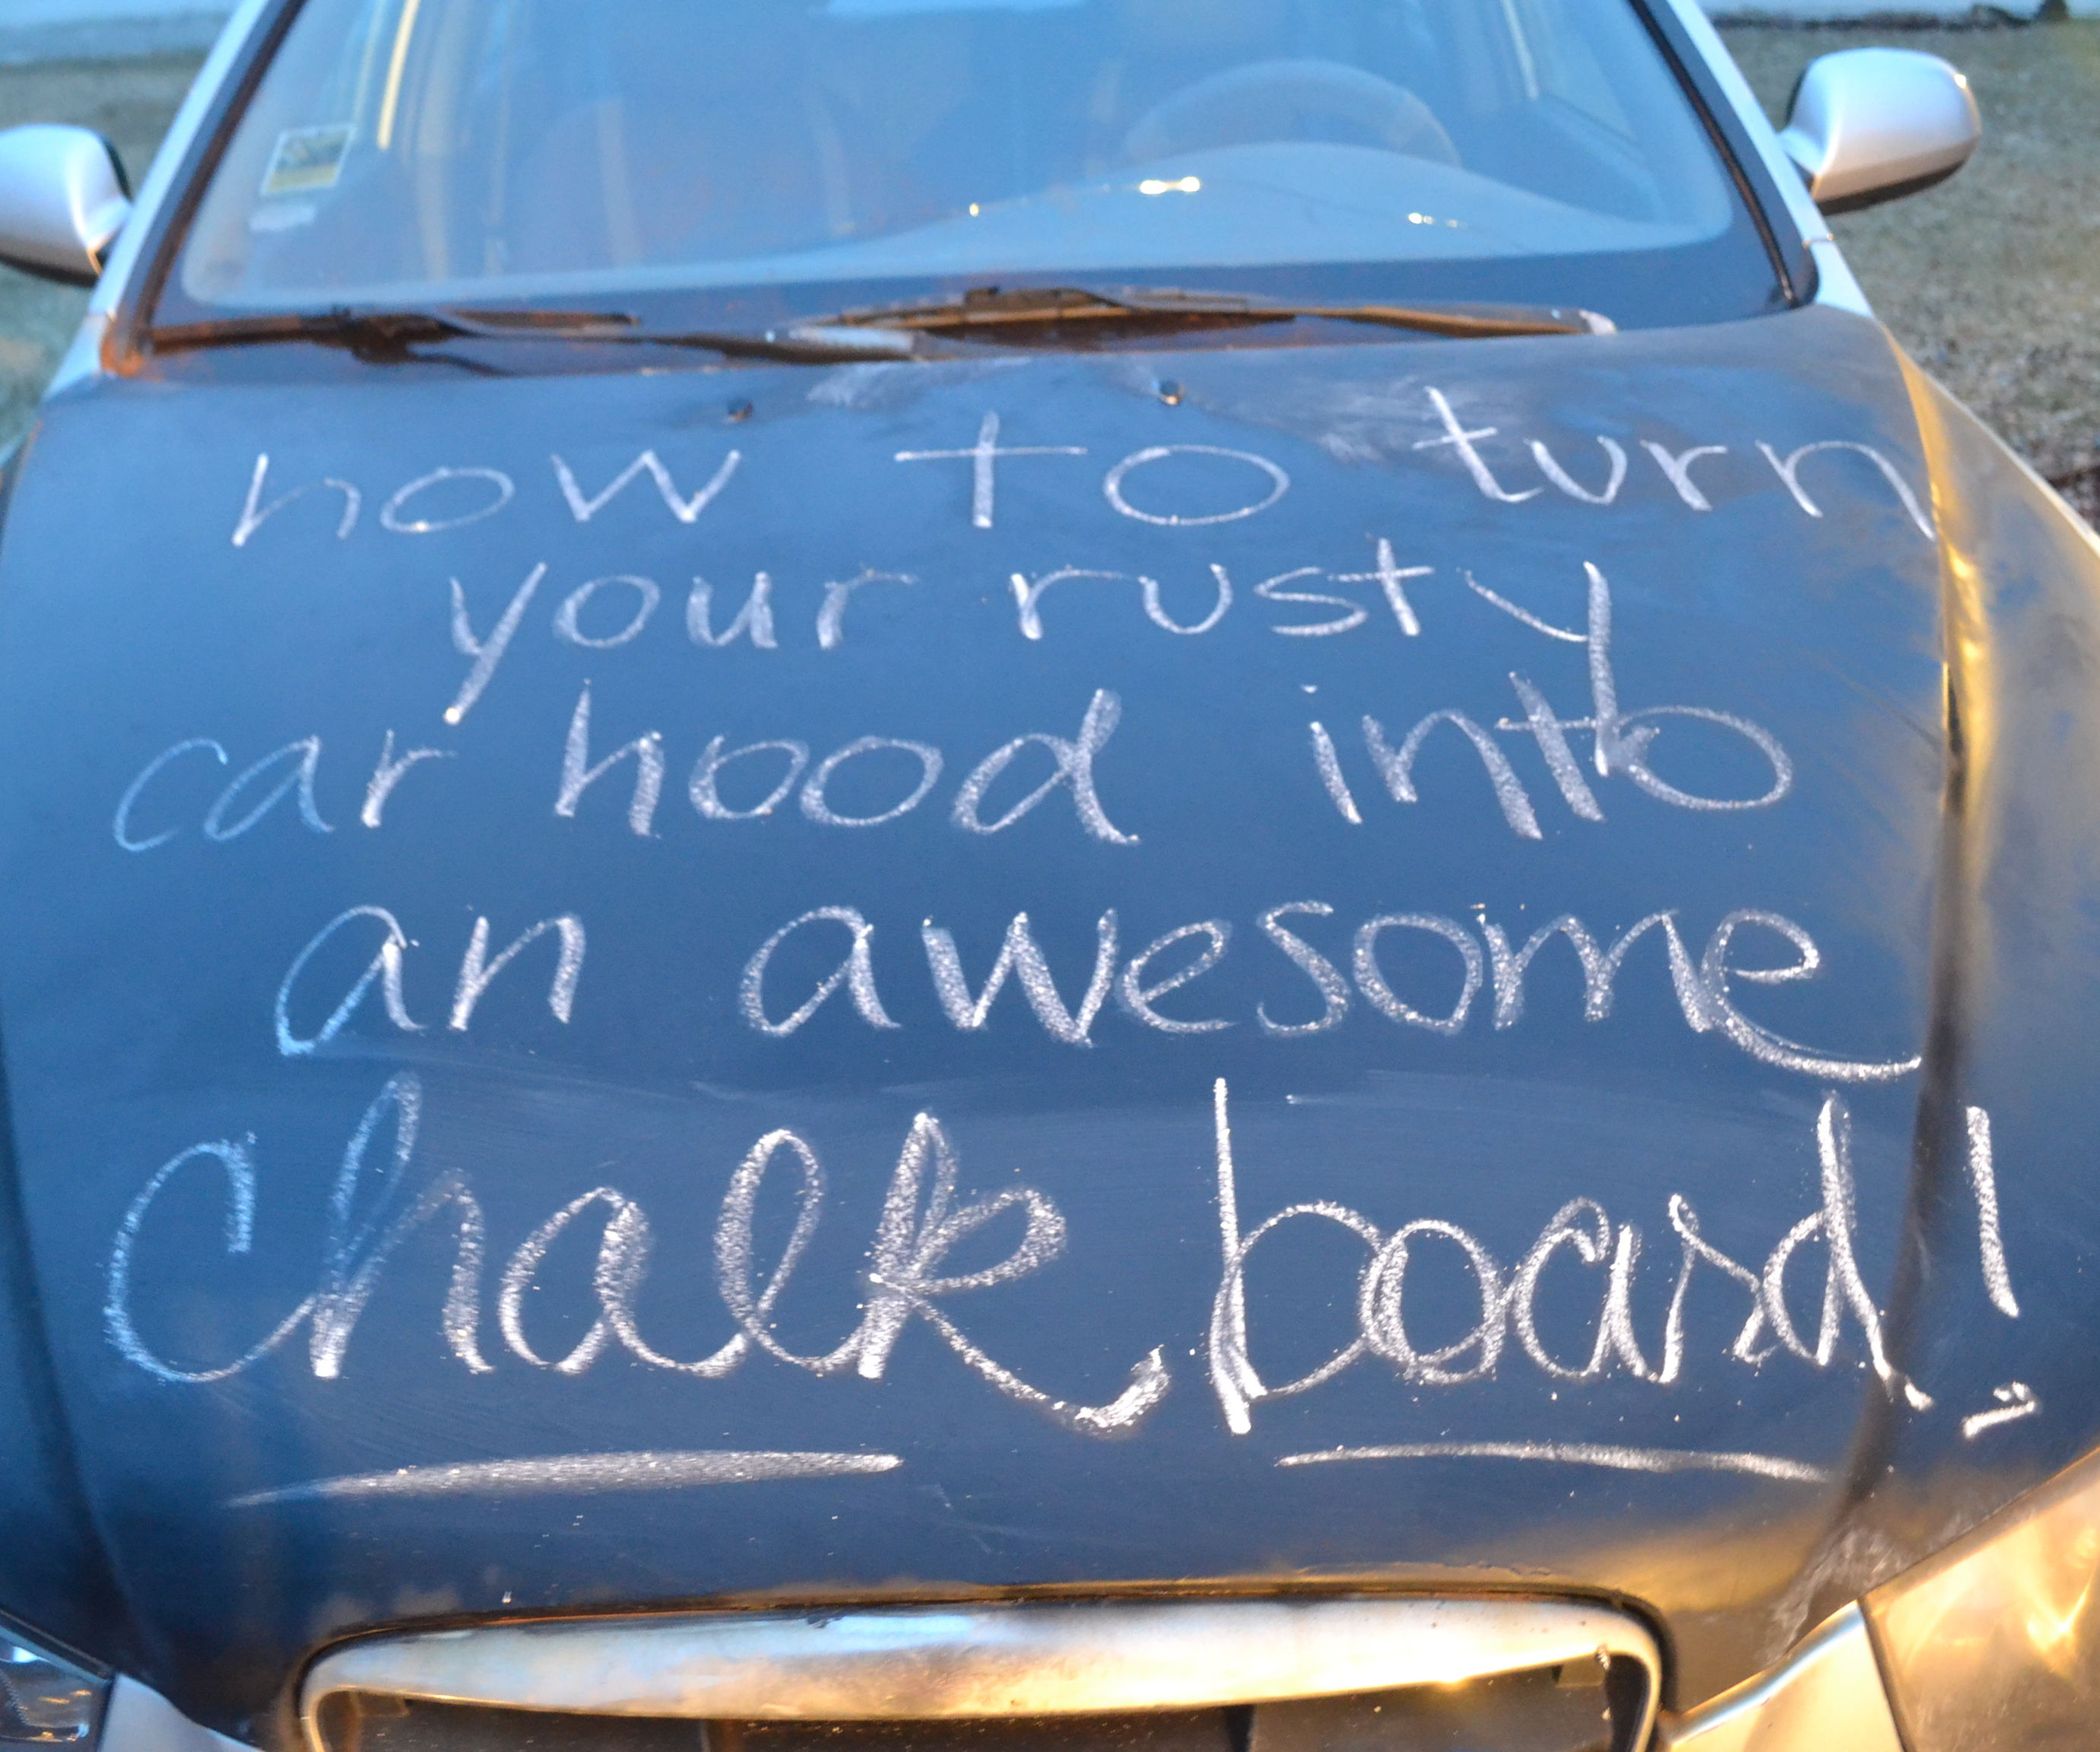 how to turn
your rusty
car hood into
an awesome
Chalk board!